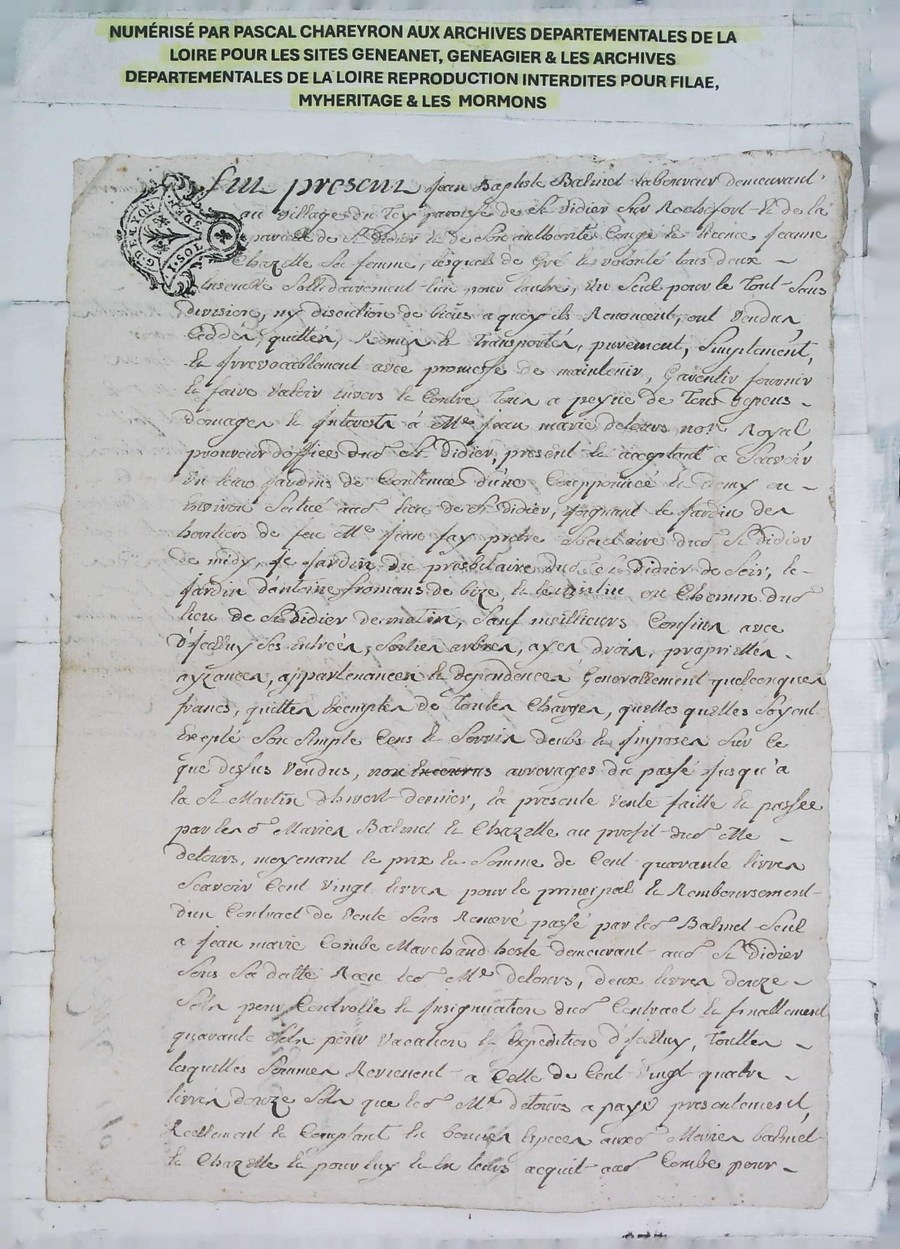 NUMÉRISÉ PAR PASCAL CHAREYRON AUX ARCHIVES DEPARTEMENTALES DE LA
LOIRE POUR LES SITES GENEANET, GENEAGIER & LES ARCHIVES
DEPARTEMENTALES DE LA LOIRE REPRODUCTION INTERDITES POUR FILAE,
MYHERITAGE & LES MORMONS
G. DE LYON
1. SOL
Jean Baptiste Balmet laboureur demeurant
au village du paroisse de St Didier sur Rochefort et de la
de St Didier et de son authorité Congé et licence Jeanne
Chazelle sa femme, lesquels de Gré et volonté tous deux
ensemble sollidairement l'un pour l'autre, un seul pour le Tout sans
division, ny discution de biens a quoy ils Renoncent, ont vendu
Ceddés, quittés, Remis et Transportés, purement, simplement,
et Irrevocablement avec promesse de maintenir, Garentir fournir
et faire valoir envers et Contre Tous a peyne de Tous depens
domages et Interets à Me Jean marie delours nore Royal
procureur d'office dud St Didier, present et acceptant a scavoir
un jardins de Contenue d'une Couponnée et demy ou
environ scitué aud lieu de St Didier, joignant le jardin des
heritiers de feu Me Jean fay pretre Societaire dud St Didier
de midy, le jardin du presbitaire dud St Didier de soir, le
jardin d'antoine fromans de bize, et le ou Chemin dud
lieu de St Didier de matin, sauf meillieurs Confins avec
d'Jcelluy ses entrées, sorties arbres, ayes droits, proprietés
ayzances, appartenances et dependences Generallement quelconques
francs, quittes exemptes de Toutes Charges, quelles quelles soyent
Excepté son simple Cens et Servis deubs et Imposés sur Ce
que dessus vendus, arrerages du passé Jusqu'a
la St Martin d'hivert dernier, la presente vente faitte et passée
par les d Mariés Balmet et Chazelle au profit dud Me
delours, moyenant le prix et somme de Cent quarante livres
Scavoir Cent vingt livres pour le principal et Remboursement
d'un Contract de vente sous Remeré passé par led Balmet seul
a Jean marie Combe Marchand hoste demeurant aud St Didier
sous sa datte Receu led Me delours, deux livres douze
sols pour Controlle et Insignuation dud Contract et finallement
quarante sols pour vacation et Expedition d'Jcelluy, Touttes
lesquelles sommes Revienent a Celle de Cent vingt quatre
livres douze sols que led Me delours a payé presentement,
Reellement et Comptant en bonnes Especes auxd Mariés balmet
et Chazelle et pour eux et en leurs acquit aud Combe pour